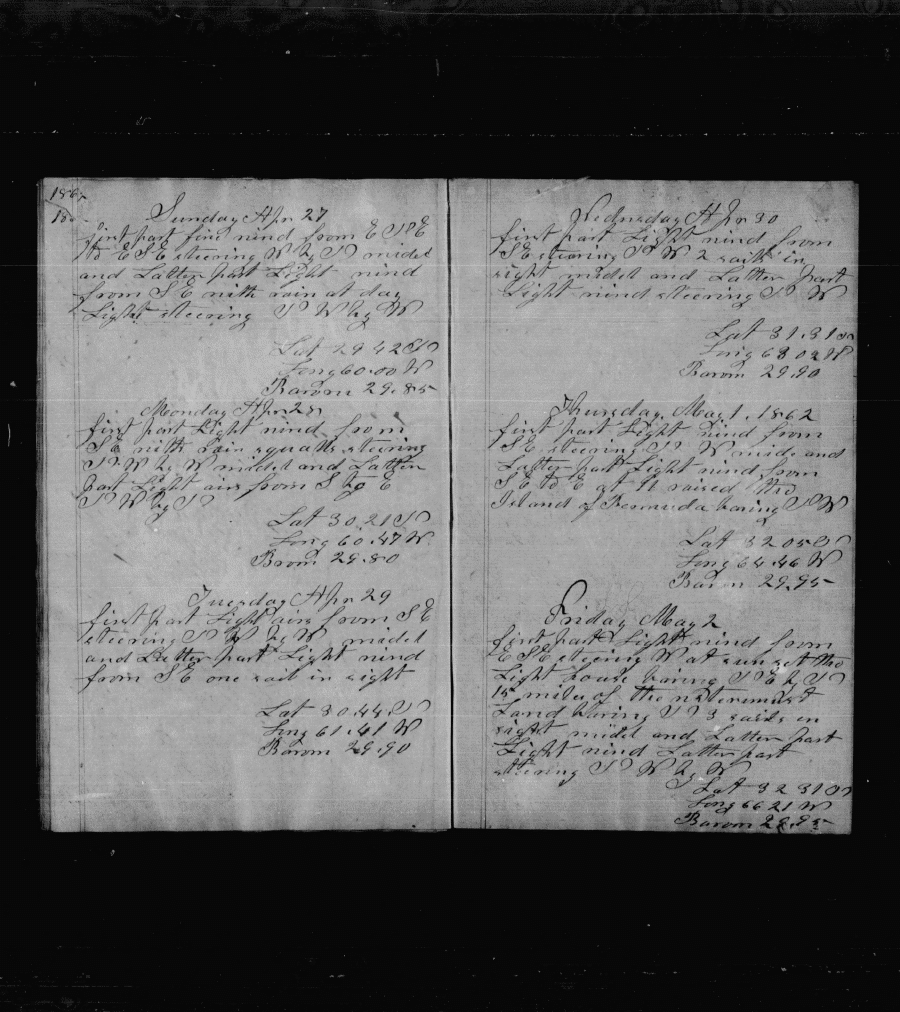 186
18
Sunday Apr 27
first part fine wind from E N E
to E S E steering W by N midel
and Latter part Light wind
from S E with rain at day
Light steering N W by W
Lat 29 42 N
Long 60.00 W
Barom 29.85
Monday Apr 28
first part Light wind from
S E with Rain squalls steering
N W by W midel and Latter
part Light airs from S to E
N W by N
Lat 30.21 N
Long 60.47 W
Brom 29.80
Tuesday Apr 29
first part Light airs from S E
steering N W by W midel
and Latter part Light wind
from S E one sail in sight
Lat 30.44 N
Long 61.41 W
Barom 29.90
Wednesday Apr 30
first part Light wind from
S E steering N W 2 sails in
sight midel and Latter part
Light wind steering N W
Lat 31.31 N
Long 63.02 W
Barom 29.90
Thursday May 1, 1862
first part Light wind from
S E steering N W mide and
Latter part Light wind from
S E to E at 11 raised the
Island of Bermuda baring N W
Lat 32 05 N
Long 64.46 W
Barom 29.95
Friday May 2
first part Light wind from
E S E steering W at sun set the
Light house baring N E by N
15 miles of the westernmost
Land baring N 3 sails in
sight midel and Latter part
Light wind Latter part
steering N W by W
Lat 32 31 N
Long 66 21 W
Barom 29.95